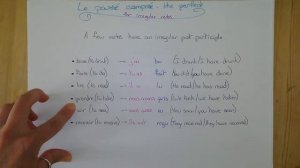 Le passé composé - the perfect
for irregular verbs
A few verbs have an irregular past participle
boire (to drink) → j'ai bu (I drank / I have drunk)
Faire (to do) → Tu as fait
lire (to read) → Il a lu (He read / he has read)
prendre (to take) → nous avons pris (We took / we have taken)
voir (to see) → vous avez vu (You saw / you have seen)
recevoir (to receive) → reçu (They received / they have received)